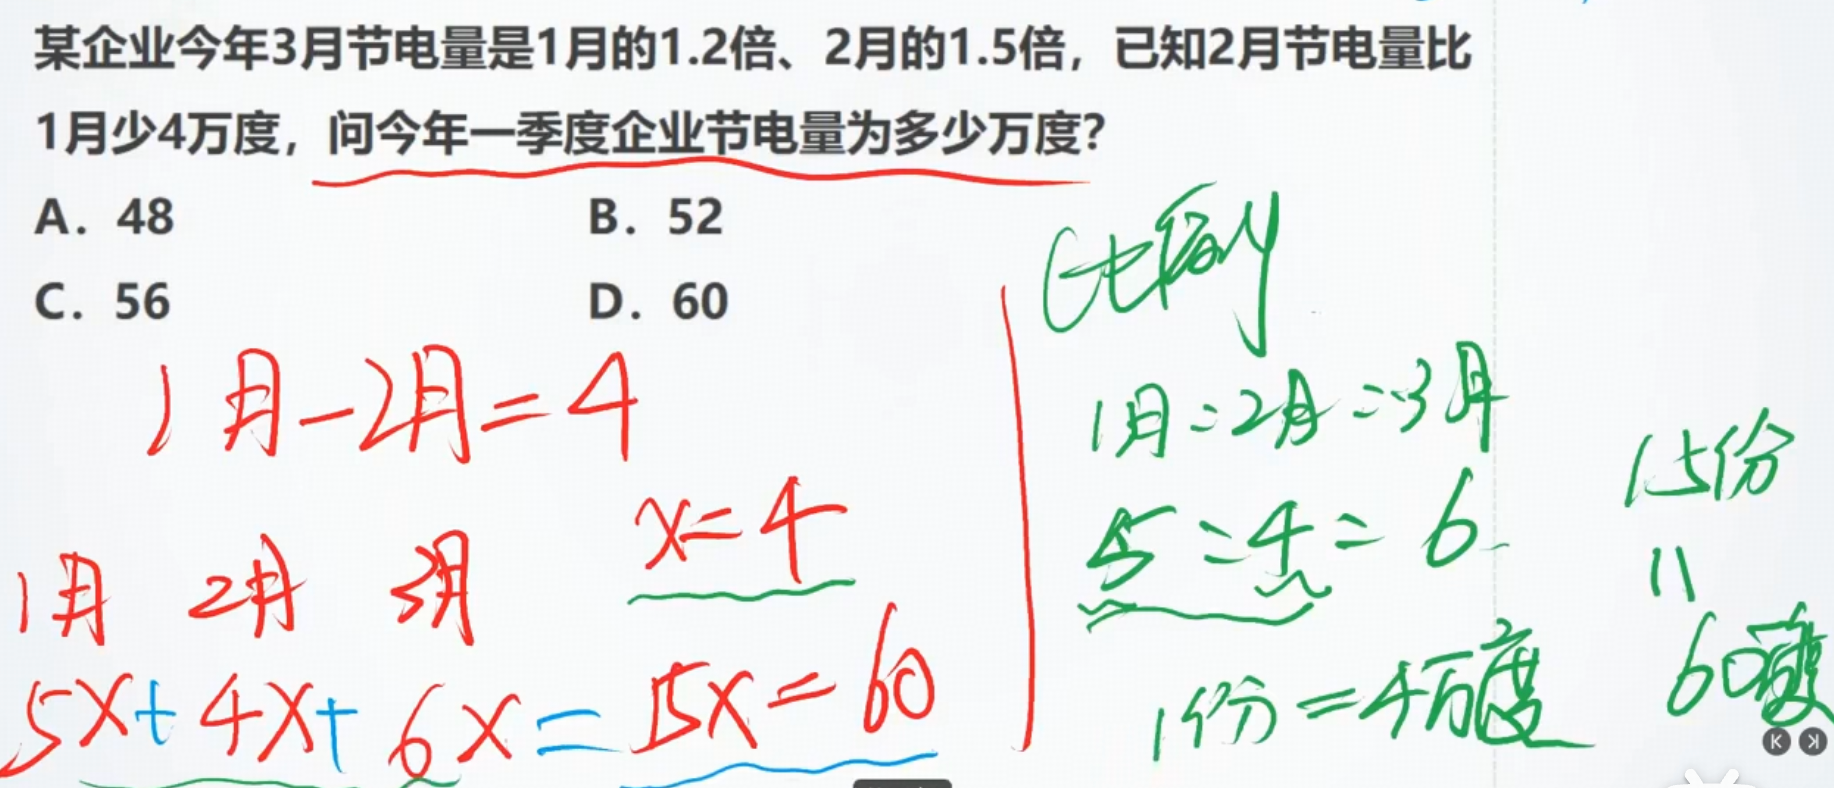 某企业今年3月节电量是1月的1.2倍、2月的1.5倍，已知2月节电量比
1月少4万度，问今年一季度企业节电量为多少万度？
A. 48
B. 52
C. 56
D. 60
1月-2月=4
x=4
1月 2月 3月
5x+4x+6x=15x=60
比例
1月:2月:3月
5:4:6
1份=4万度
15份
11
60万度